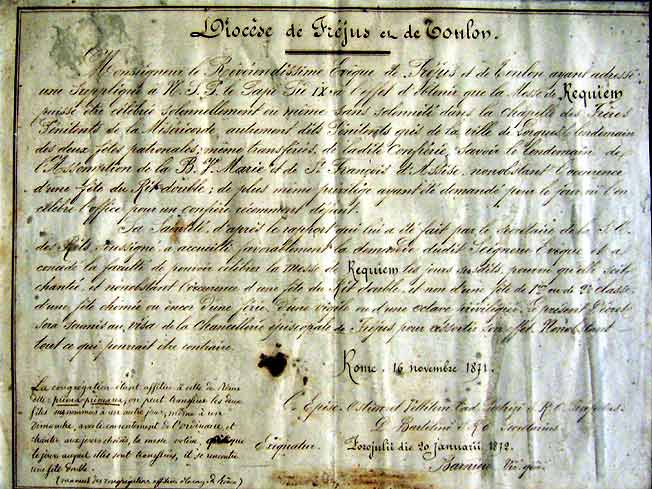 Diocèse de Fréjus et de Toulon.
Monseigneur le Révérendissime Évêque de Fréjus et de Toulon ayant adressé
une Supplique à N. S. P. le Pape Pie IX à l'effet d'obtenir que la Messe de Requiem
puisse être célébrée solennellement ou même sans solennité dans la chapelle des Frères
Pénitents de la Miséricorde, autrement dits Pénitents gris de la ville de Lorgues, le lendemain
des deux fêtes patronales, même transférées, de ladite Confrérie, savoir le lendemain de
l'Assomption de la B. V. Marie et de St. François d'Assise, nonobstant l'occurence
d'une fête du Rit double; de plus même privilège ayant été demandé pour le jour où l'on
célèbre l'office pour un confrère récemment défunt.
Sa Sainteté, d'après le rapport qui lui a été fait par le Secrétaire de la S. C.
des Rits soussigné, a accueilli favorablement la demande dudit Seigneur Évêque et a
concédé la faculté de pouvoir célébrer la messe de Requiem les jours susdits, pourvu qu'elle soit
chantée et nonobstant l'occurence d'une fête du Rit double, et non d'une fête de 1re ou de 2e classe,
d'une fête chômée ou encor d'une férie, d'une vigile ou d'une octave privilégiée. Le présent Décret
sera soumis au visa de la Chancellerie épiscopale de Fréjus pour ressortir son effet. Nonobstant
tout ce qui pourrait être contraire.
Rome, 16 novembre 1871.
La congrégation étant affiliée à celle de Rome
dite: prima-primaria, on peut transférer les deux
fêtes susnommées à un autre jour, même à un
dimanche, avec le consentement de l'ordinaire, et
chanter aux jours choisis, la messe votive,
le jour auquel elles sont transférées, il se rencontre
une fête double.
(manuel des congrégations affiliées à Rome)
C. Episc. Ostien et Velitern Card. S. R. C.
D. Bartolini S. R. C. Secretarius
Exequatur. Forojulii die 20 januarii 1872.